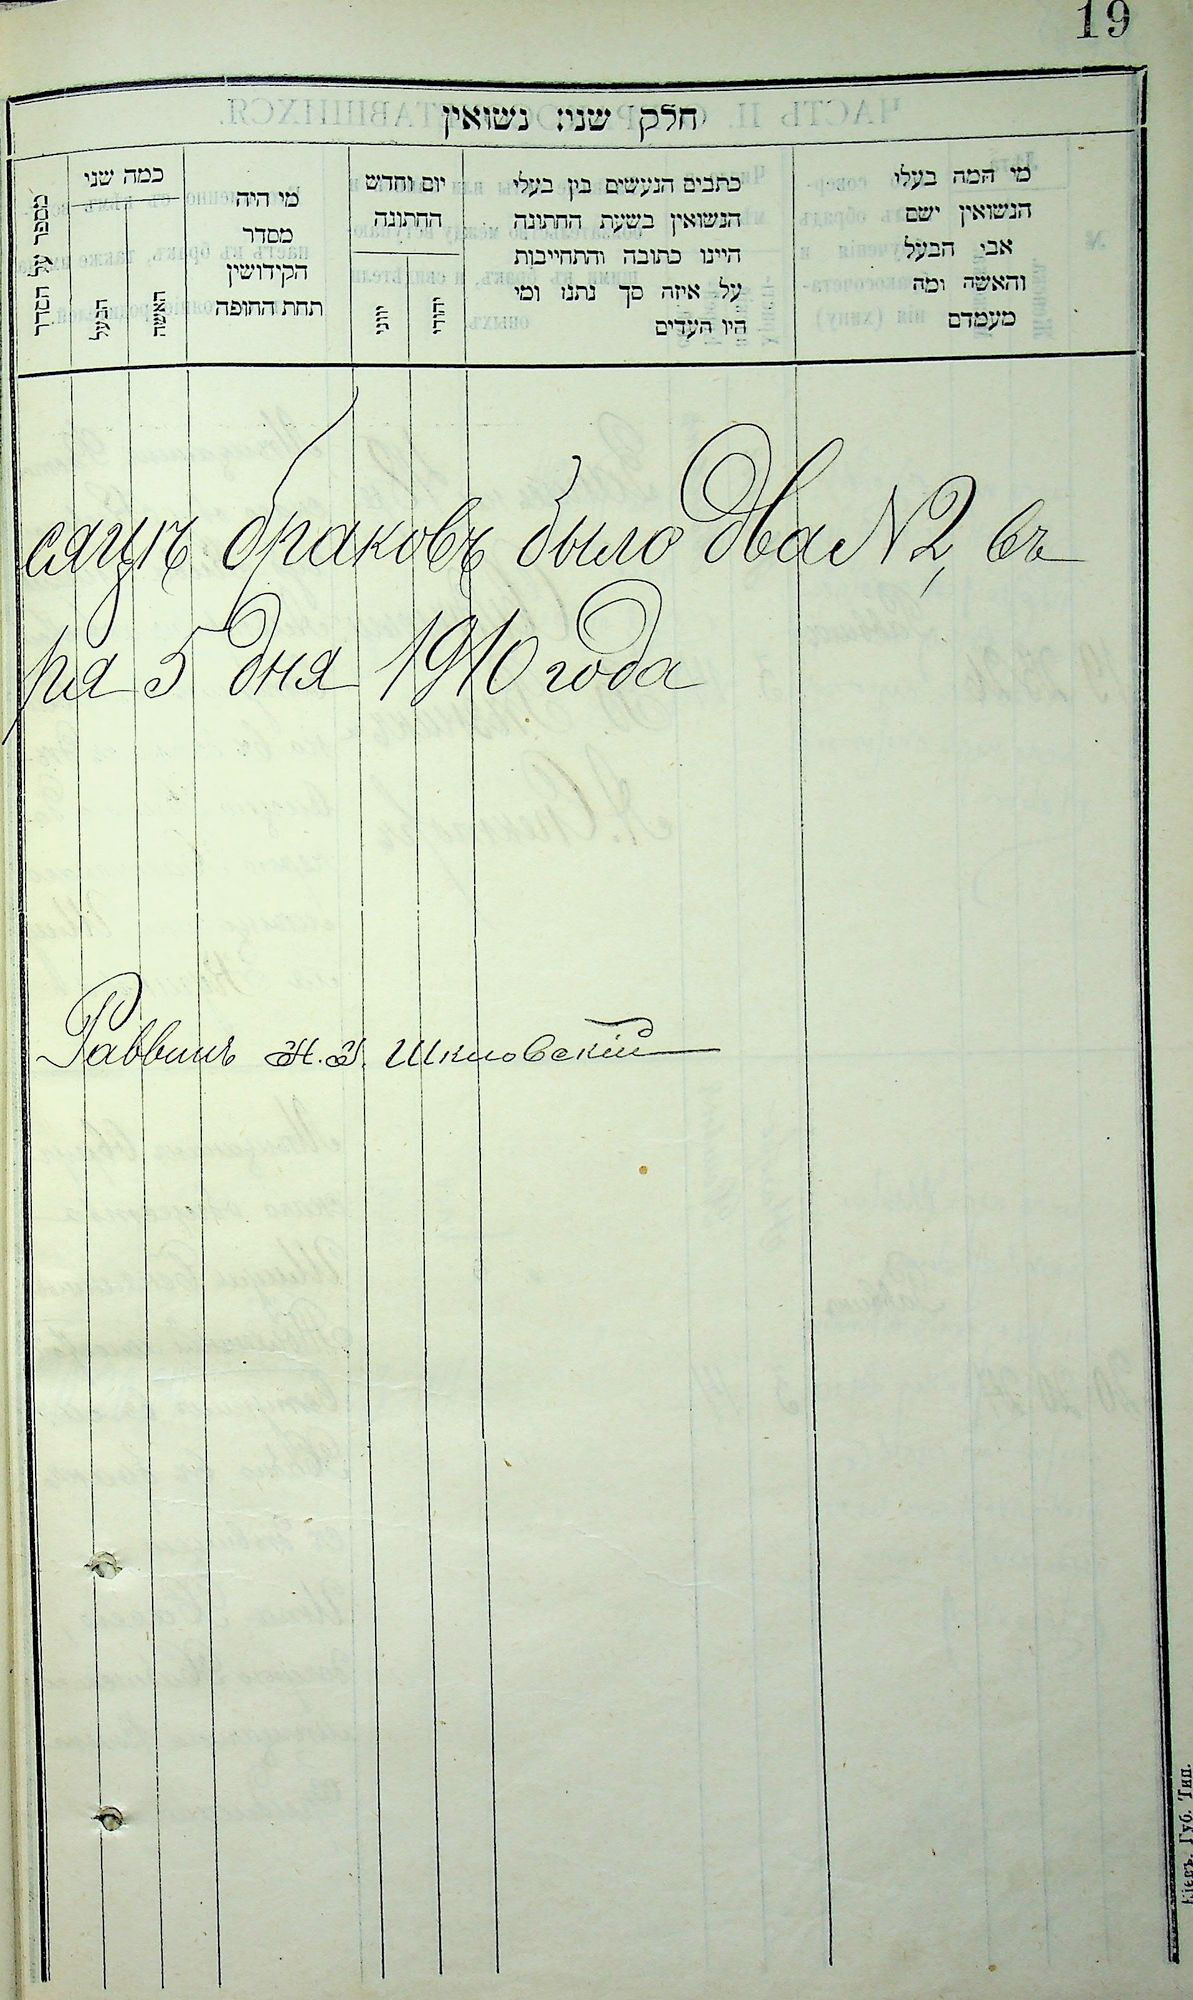 19
חלק שני: נשואין
מי המה בעלי
הנשואין ושם
אבי הבעל
והאשה ומה
מעמדם
כתבים הנעשים בין בעלי
הנשואין בשעת החתונה
היינו כתובה והתחייבות
על איזה סך נתנו ומי
היו העדים
יום וחדש
החתונה
יהודי
יווני
מי היה
מסדר
הקידושין
תחת החופה
כמה שני
האשה
הבעל
מספר על הסדר
сяцѣ браковъ было два №2, въ
ря 5 дня 1910 года
Раввинъ Шкловскій
Кіевъ. Губ. Тип.